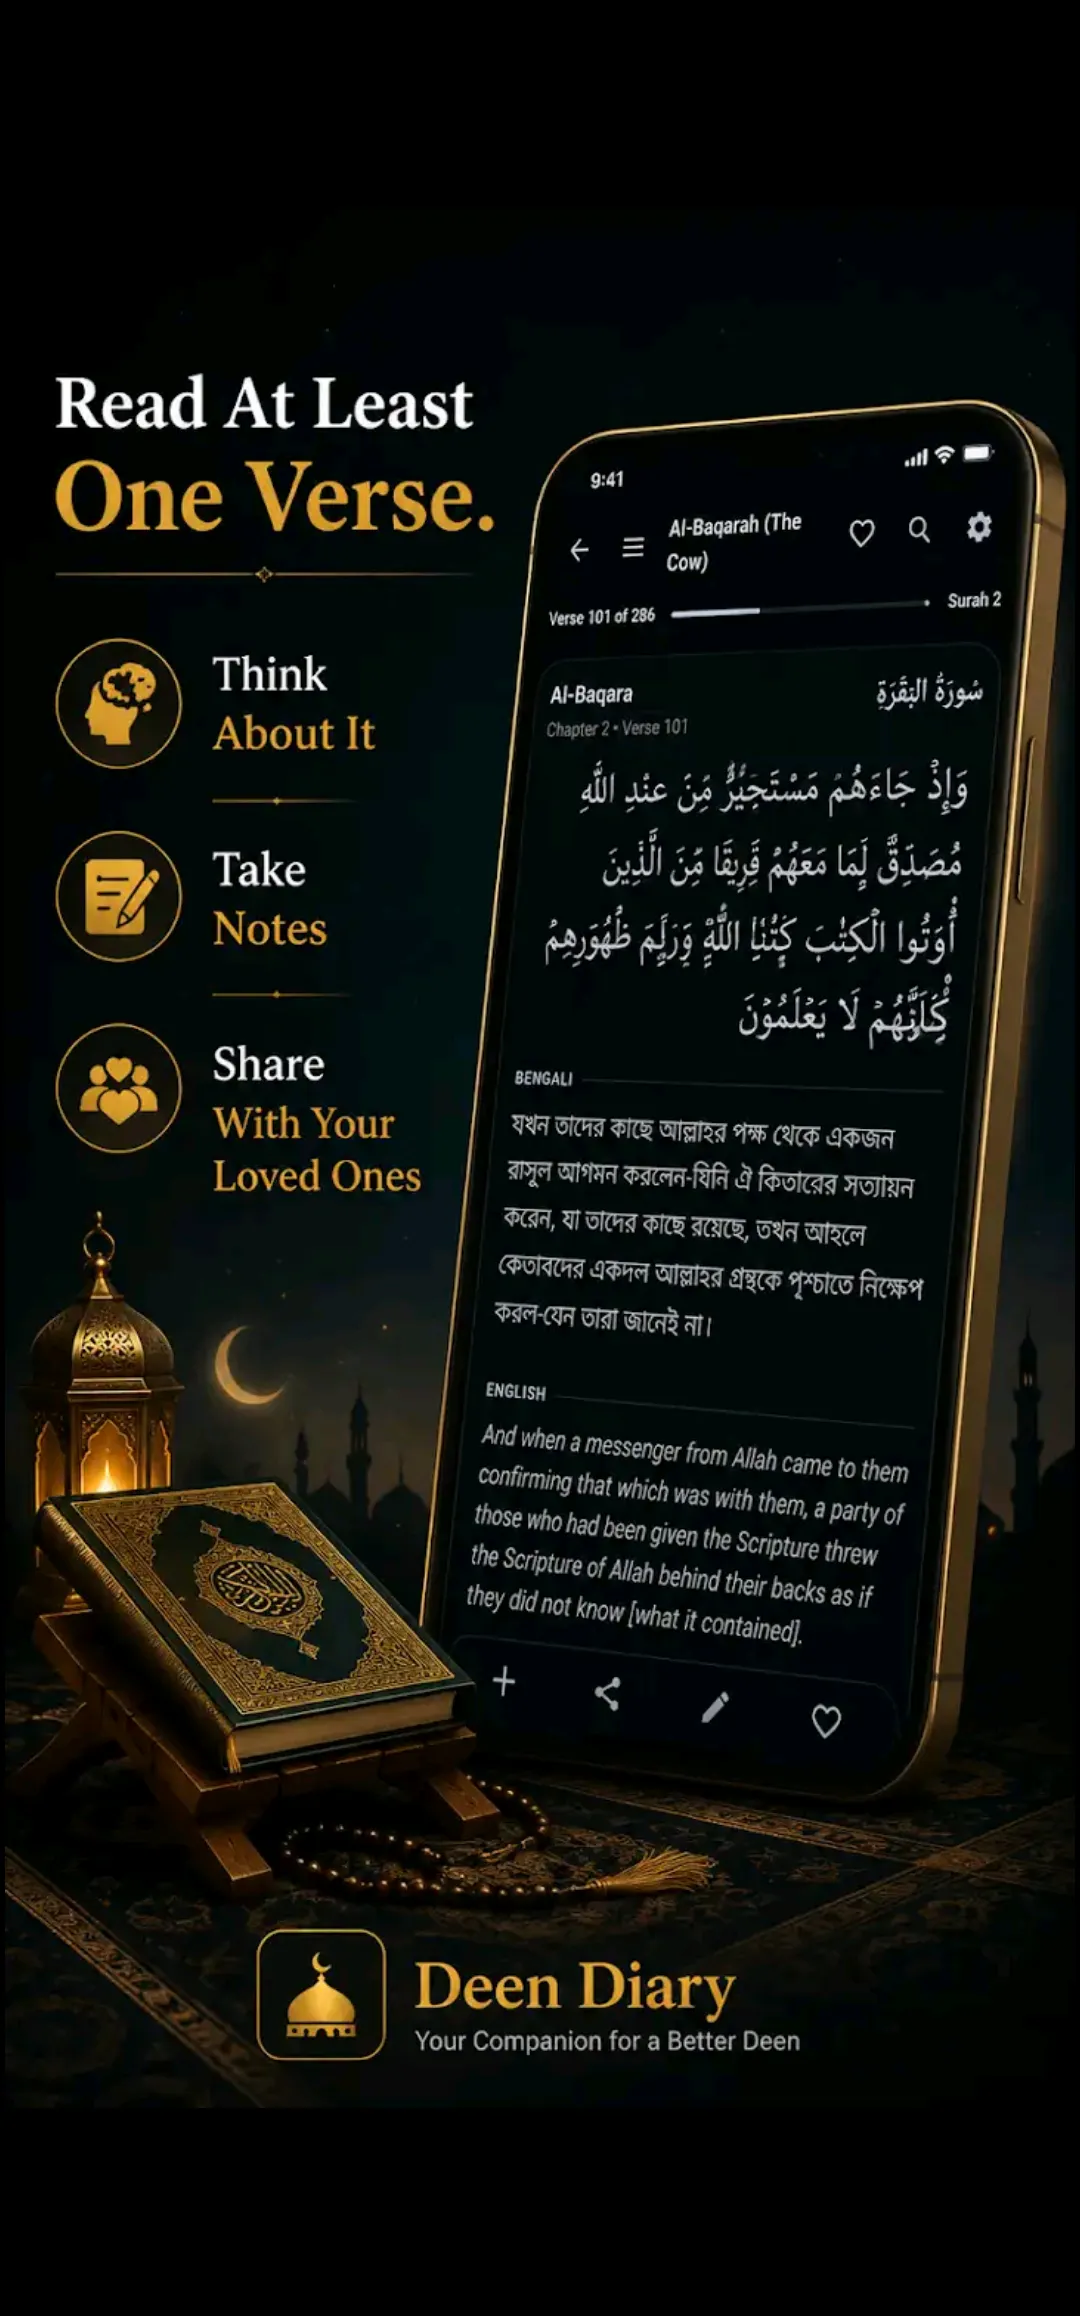 Read At Least
One Verse.
Think
About It
Take
Notes
Share
With Your
Loved Ones
9:41
Al-Baqarah (The
Cow)
Verse 101 of 286
Surah 2
Al-Baqara
سُورَةُ البَقَرَةِ
Chapter 2 • Verse 101
وَإِذْ جَاءَهُمْ مَسْتَجِيْرٌ مِّنَ عنْدِ اللَّهِ
مُصَدِّقٌ لِمَا مَعَهُمْ قَرِيقًا مِّنَ الَّذِينَ
أُوَتُوا الْكِتٰبَ اللَّهِ ظُهُوَرِهِمْ
لَا يَعْلَمُوْنَ
BENGALI
যখন তাদের কাছে আল্লাহর পক্ষ থেকে একজন
রাসূল আগমন করলেন-যিনি ঐ কিতারের সত্যায়ন
করেন, যা তাদের কাছে রয়েছে, তখন আহলে
কেতাবদের একদল আল্লাহর গ্রন্থকে পৃশ্চাতে নিক্ষেপ
করল-যেন তারা জানেই না।
ENGLISH
And when a messenger from Allah came to them
confirming that which was with them, a party of
those who had been given the Scripture threw
the Scripture of Allah behind their backs as if
they did not know [what it contained].
Deen Diary
Your Companion for a Better Deen